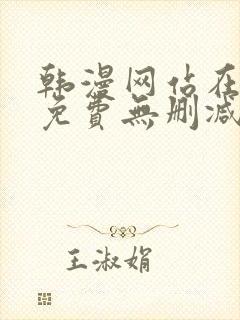 韩漫网站在
免費無删减
王淑娟